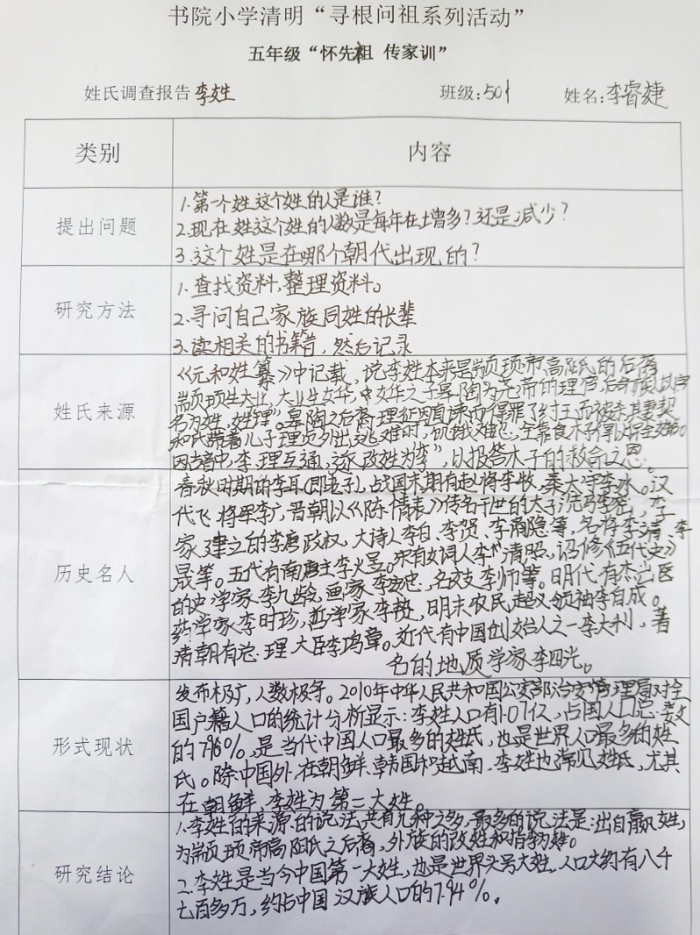 书院小学清明“寻根问祖系列活动”
五年级“怀先祖 传家训”
姓氏调查报告 李姓 班级:501 姓名:李睿婕
类别 内容
提出问题
1.第一个姓这个姓的人是谁?
2.现在姓这个姓的人数是每年在增多?还是减少?
3.这个姓是在哪个朝代出现的?
研究方法
1.查找资料,整理资料。
2.寻问自己家族同姓的长辈
3.读相关的书籍,然后记录
姓氏来源
《元和姓纂》中记载,说李姓本来是颛顼帝高阳氏的后裔
颛顼生大业,大业生女华,女华之子皋陶为尧帝的理官,后
名为姓,姓“理”。皋陶之后裔理征因直谏而得罪了纣王而被
和氏带着儿子理贞外出逃难时,
因古书中,李、理互通,遂“改姓为李”,以报答木子的救命之恩。
历史名人
春秋时期的李耳(即老子),战国末期有赵将李牧,秦太守李冰。汉
代飞将军李广,晋朝以《陈情表》传名于世的太子洗马李密,李
家建立的李唐政权,大诗人李白、李贺、李商隐等,名将李靖、李
晟等。五代有南唐主李煜。宋有女词人李清照,诏修《五代史》
的史学家李九龄,画家李宏忠,名妓李师等。明代有杰出医
药学家李时珍,哲学家李贽,明末农民起义领袖李自成。
清朝有总理大臣李鸿章。近代有中国创始人之一李大钊,著
名的地质学家李四光。
形式现状
发布极广,人数极多。2010年中华人民共和国公安部治安管理局对全
国户籍人口的统计分析显示:李姓人口有1.07亿,占国人口总数
的7.96%,是当代中国人口最多的姓氏,也是世界人口最多的姓
氏。除中国外,在朝鲜、韩国和越南,李姓也常见姓氏,尤其
在朝鲜,李姓为第二大姓。
研究结论
1.李姓的来源的说法共有九种之多,最多的说法是:出自嬴姓,
为颛顼帝高阳氏之后裔,外族的改姓和指李为姓。
2.李姓是当今中国第一大姓,也是世界头号大姓,人口大约有八千
七百多万,约占中国汉族人口的7.94%。